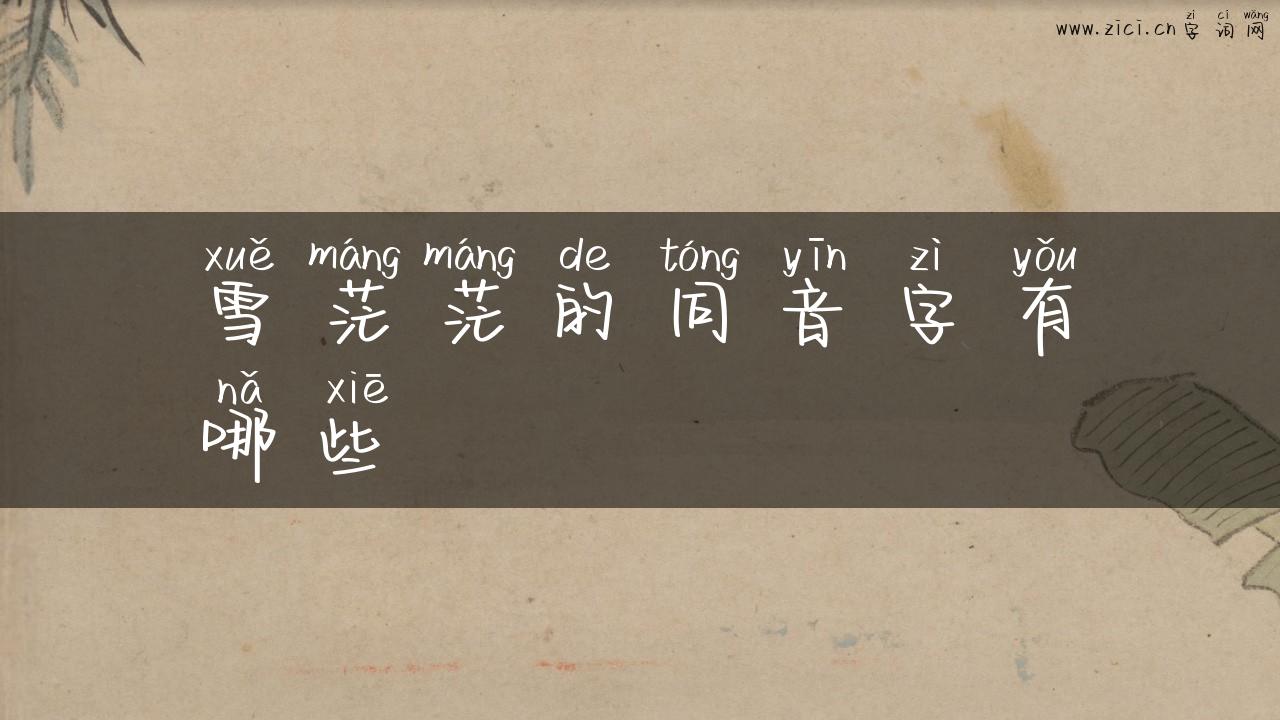 zì cí wǎng
www.zici.cn 字词网
xuě máng máng de tóng yīn zì yǒu
雪茫茫的同音字有
nǎ xiē
哪些